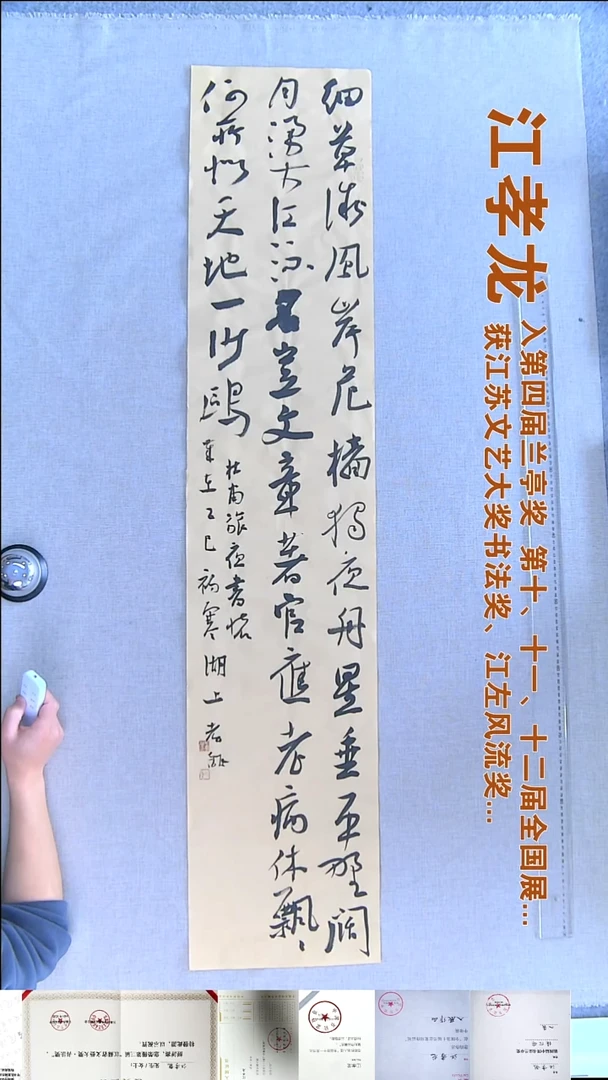 江孝龙
入第四届兰亭奖 第十、十一、十二届全国展...
获江苏文艺大奖书法奖、江左风流奖...
细草微風岸危檣獨夜舟星垂平野闊
月湧大江流名豈文章著官應老病休飄〻
何所似天地一沙鷗
杜甫旅夜書懷
歲在乙巳 寒湖上